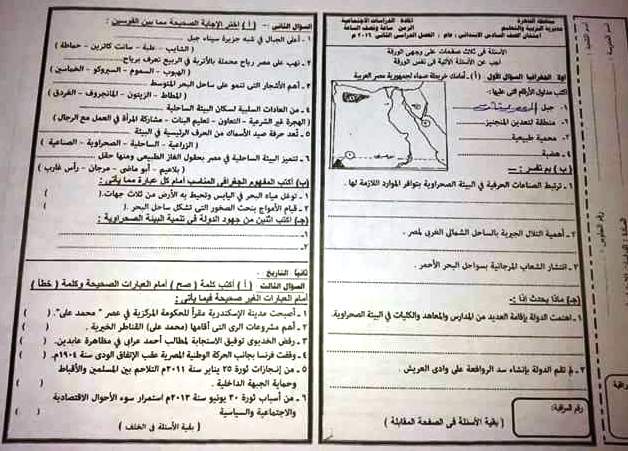 محافظة القاهرة
مديرية التربية والتعليم
مادة الدراسات الاجتماعية
الزمن ساعة ونصف الساعة
امتحان الصف السادس الابتدائى ؛ عام : الفصل الدراسى الثانى ٢٠١٦ م
الأسئلة فى ثلاث صفحات على وجهى الورقة
أجب عن الأسئلة الآتية فى نفس الورقة
أولا الجغرافيا السؤال الأول (أ) ـ أمامك خريطة صماء لجمهورية مصر العربية
اكتب مدلول الأرقام التى عليها :
١ - جبل
٢ - منطقة لتعدين المنجنيز
٣ - محمية طبيعية
٤ - هضبة
(ب) بم تفسر : -
١ - ترتبط الصناعات الحرفية في البيئة الصحراوية بتوافر الموارد اللازمة لها .
٢ - أهمية التلال الجيرية بالساحل الشمالى الغربى لمصر .
٣ - انتشار الشعاب المرجانية بسواحل البحر الأحمر .
(جـ) ماذا يحدث إذا :-
١ - اهتمت الدولة بإقامة العديد من المدارس والمعاهد والكليات في البيئة الصحراوية.
٢ - لم تقم الدولة بإنشاء سد الروافعة على وادى العريش .
رقم المراقبة:
( بقية الأسئلة فى الصفحة المقابلة )
السؤال الثانى - ( أ ) اختر الإجابة الصحيحة مما بين القوسين :
١ - أعلى الجبال في شبه جزيرة سيناء جبل
( الشايب - علبة - سانت كاترين - حماطة )
٢ - تهب على مصر رياح محملة بالأتربة في الربيع تعرف برياح
( الهبوب - السموم - السيروكو - الخماسين )
٣ - أهم الأشجار التى تنمو على ساحل البحر المتوسط
( المطاط - الزيتون - المانجروف - الغردق )
٤ - من العادات السلبية لسكان البيئة الساحلية
( الهجرة غير الشرعية - التعاون - تعليم البنات - مشاركة المرأة في العمل مع الرجال )
٥ - تعد حرفة صيد الأسماك من الحرف الرئيسية في البيئة
( الزراعية - الساحلية - الصحراوية - الصناعية )
٦ - تتميز البيئة الساحلية في مصر بحقول الغاز الطبيعى ومنها حقل
( بلاعيم - أبو ماضى - مرجان - رأس غارب )
(ب) أكتب المفهوم الجغرافى المناسب أمام كل عبارة مما يأتى :
١ - توغل مياه البحر في اليابس وتحيط به الأرض من ثلاث جهات. ( )
٢ - قيام الأمواج بنحت الصخور التى تشكل ساحل البحر . ( )
(جـ) اكتب اثنين من جهود الدولة فى تنمية البيئة الصحراوية :
١ -
٢ -
ثانيا التاريخ : -
السؤال الثالث ( أ ) أكتب كلمة ( صح ) أمام العبارات الصحيحة وكلمة ( خطأ )
أمام العبارات الغير صحيحة فيما يأتى :
١ - أصبحت مدينة الإسكندرية مقراً للحكومة المركزية في عصر " محمد على". ( )
٢ - أهم مشروعات الرى التى أقامها (محمد على) القناطر الخيرية . ( )
٣ - رفض الخديوى توفيق الاستجابة لمطالب أحمد عرابى في مظاهرة عابدين. ( )
٤ - وقفت فرنسا بجانب الحركة الوطنية المصرية عقب الإتفاق الودى سنة ١٩٠٤م. ( )
٥ - من إنجازات ثورة ٢٥ يناير سنة ٢٠١١م التلاحم بين المسلمين والأقباط
وحماية الجبهة الداخلية . ( )
٦ - من أسباب ثورة ٣٠ يونيو سنة ٢٠١٣م استمرار سوء الأحوال الاقتصادية
والاجتماعية والسياسية ( )
( بقية الأسئلة فى الخلف )